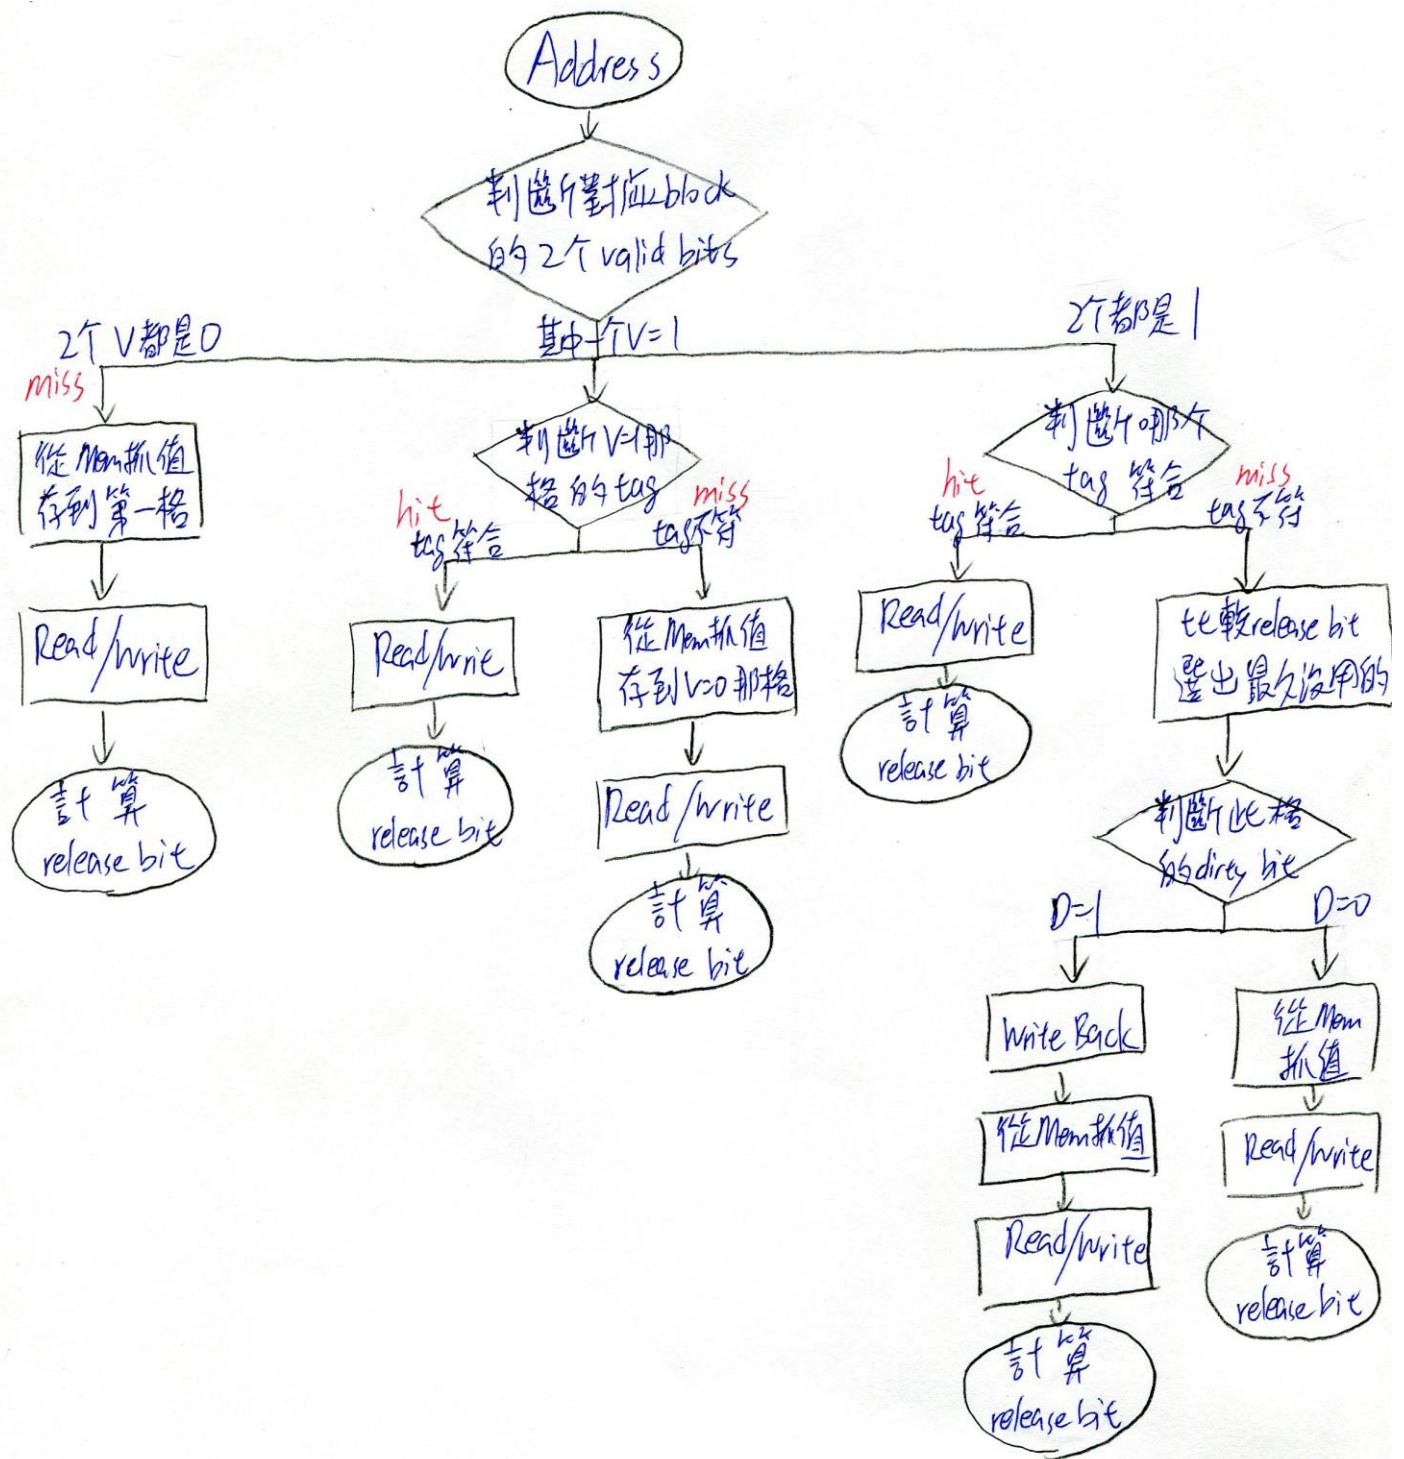 Address
判斷對应block
的2个valid bits
2个V都是0
其中一个V=1
2个都是1
miss
從Mem抓值
存到第一格
Read/Write
計算
release bit
判斷V=1那
格的tag
hit
tag符合
miss
tag不符
Read/Write
計算
release bit
從Mem抓值
存到V=0那格
Read/Write
計算
release bit
判斷哪个
tag 符合
hit
tag符合
miss
tag不符
Read/Write
計算
release bit
比較release bit
選出最久沒用的
判斷此格
的dirty bit
D=1
D=0
Write Back
從Mem抓值
Read/Write
計算
release bit
從Mem
抓值
Read/Write
計算
release bit